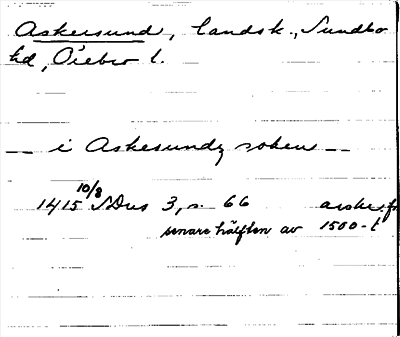 Askersund, landsk., Sundbo
hd, Örebro l.
— i Askesundz soken —
1415 10/8 SDns 3, s. 66 avskr. fr.
senare hälften av 1500-t